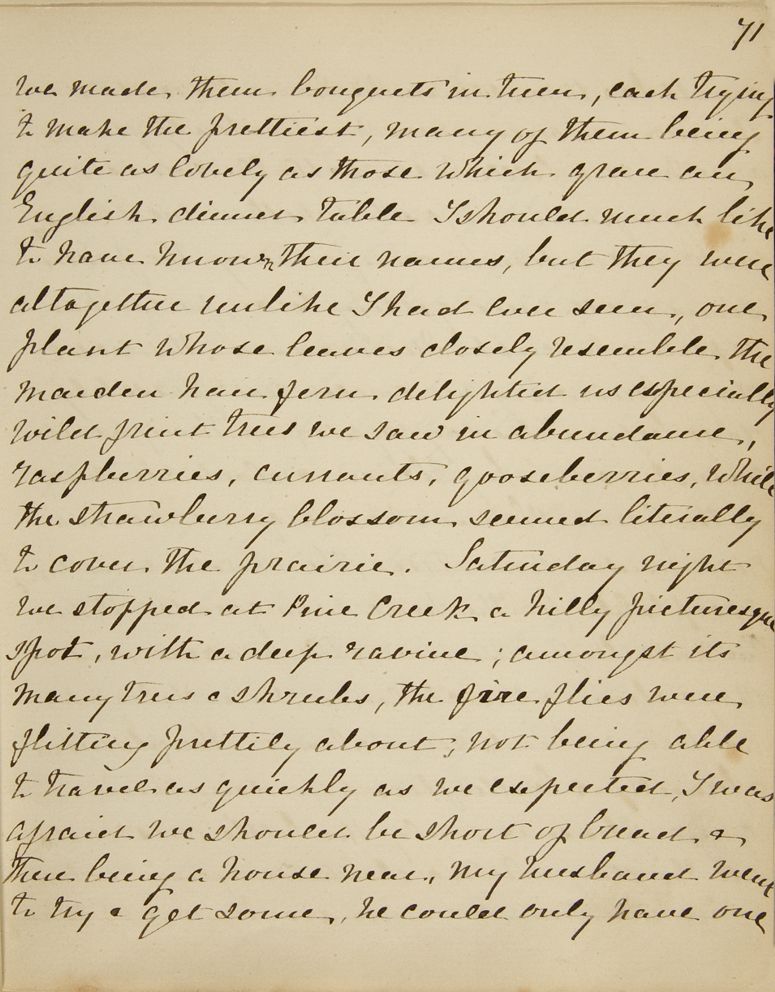 71
we made them bouquets in turn, each trying
to make the prettiest, many of them being
quite as lovely as those which grace an
English dinner table I should much like
to have known their names, but they were
altogether unlike I had ever seen, one
plant whose leaves closely resemble the
maiden hair fern delighted us especially
wild fruit trees we saw in abundance,
raspberries, currants, gooseberries, while
the strawberry blossom seemed literally
to cover the prairie. Saturday night
we stopped at Pine Creek a hilly picturesque
spot, with a deep ravine; amongst its
many trees & shrubs, the fire flies were
flitting prettily about, not being able
to travel as quickly as we expected, I was
afraid we should be short of bread &
there being a house near, my husband went
to try & get some, he could only have one